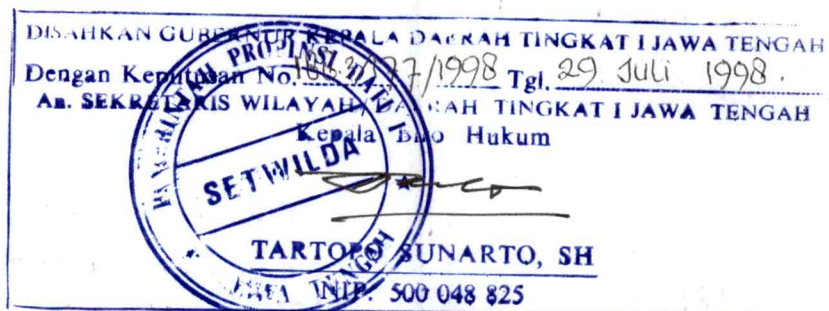 DISAHKAN GUBERNUR KEPALA DAERAH TINGKAT I JAWA TENGAH
Dengan Keputusan No. 188.3/197/1998 Tgl. 29 Juli 1998.
An. SEKRETARIS WILAYAH/DAERAH TINGKAT I JAWA TENGAH
Kepala Biro Hukum
SETWILDA
SUNARTO, SH
NIP. 500 048 825